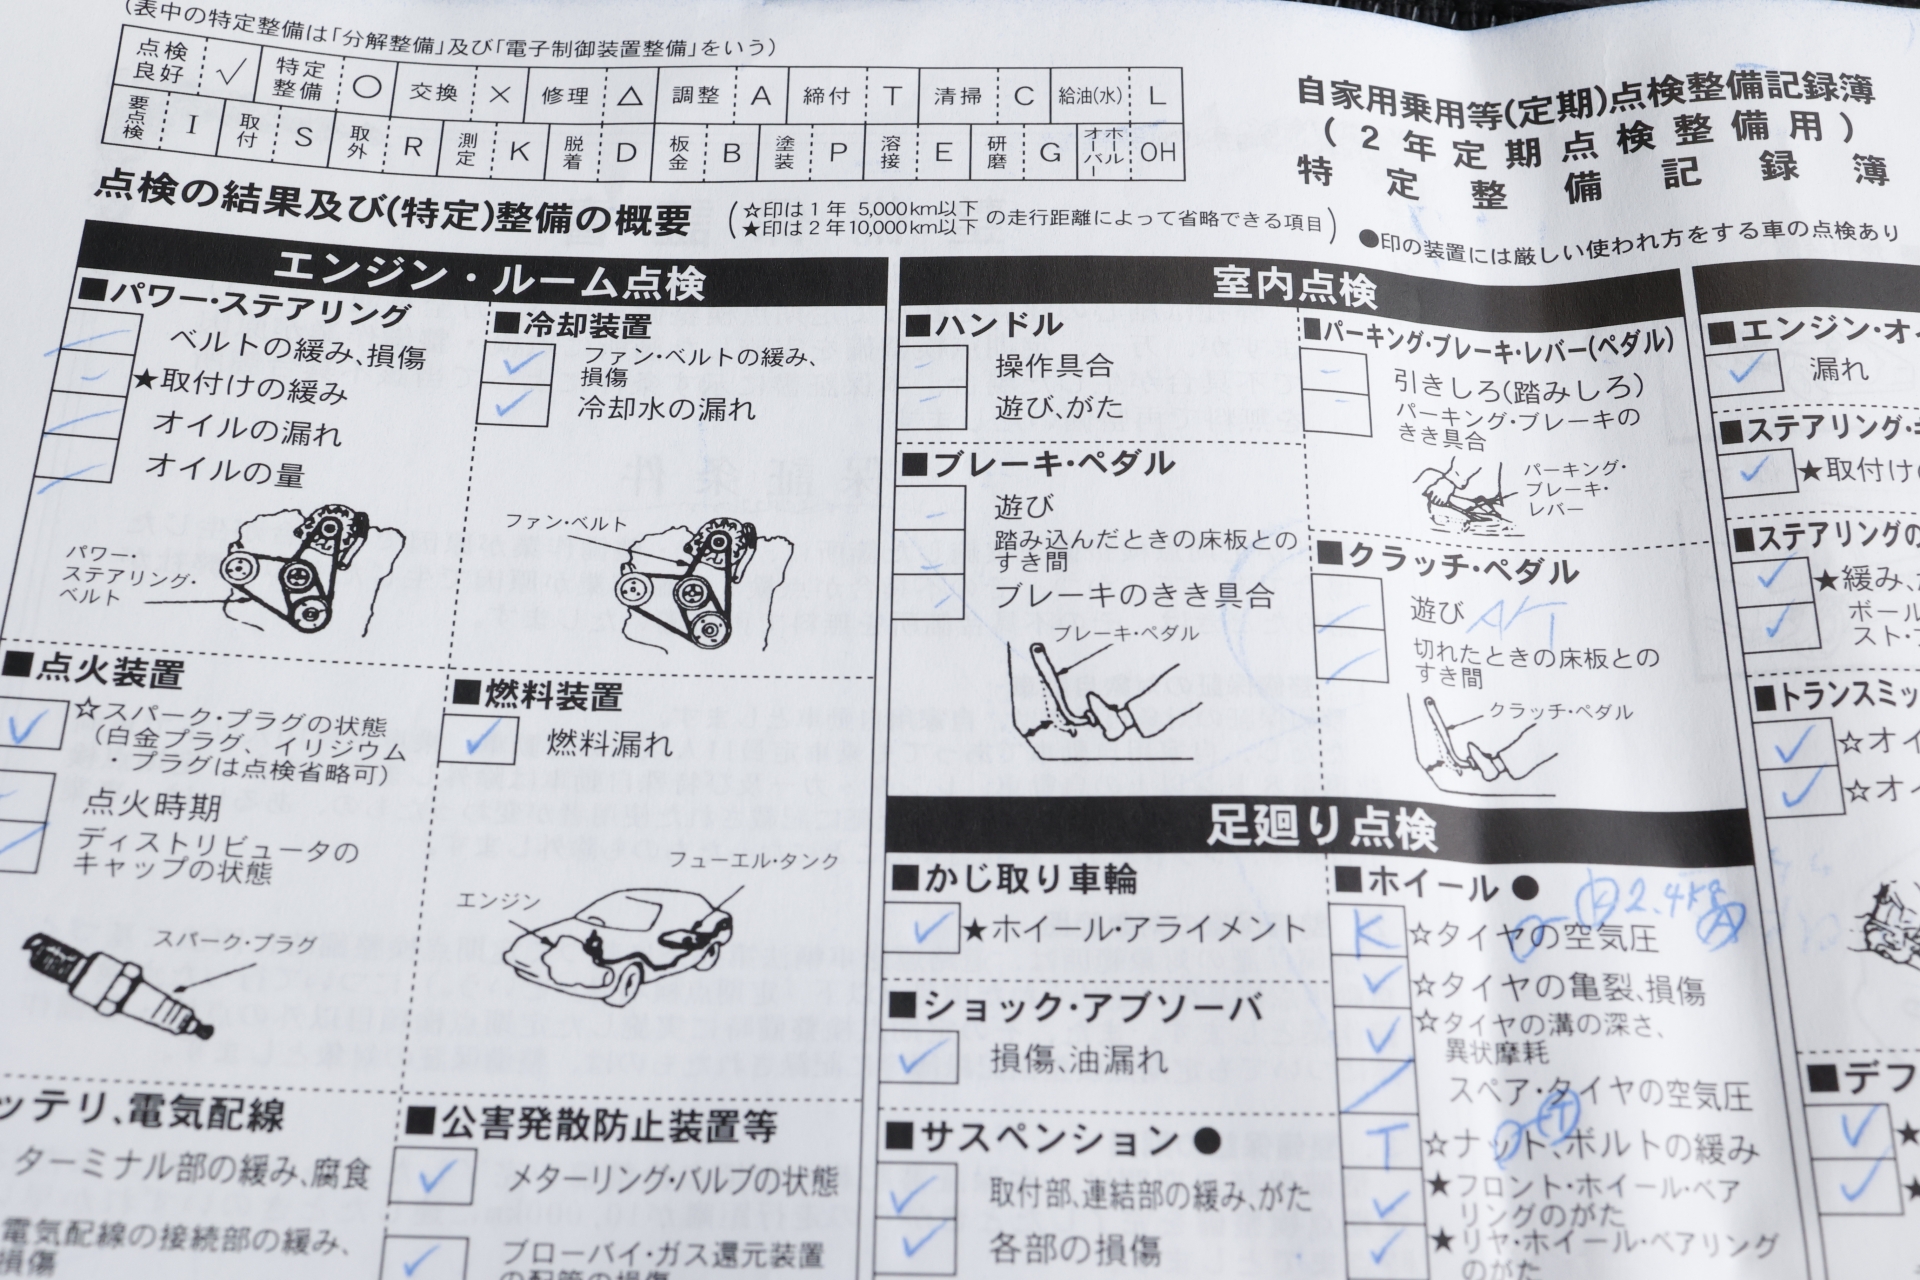 (表中の特定整備は「分解整備」及び「電子制御装置整備」をいう)
点検良好 ✓ 特定整備 ○ 交換 × 修理 △ 調整 A 締付 T 清掃 C 給油(水) L
要点検 I 取付 S 取外 R 測定 K 脱着 D 板金 B 塗装 P 溶接 E 研磨 G オーバーホール OH
自家用乗用等(定期)点検整備記録簿
(2年定期点検整備用)
特定整備記録簿
点検の結果及び(特定)整備の概要
(☆印は1年 5,000km以下
★印は2年10,000km以下 の走行距離によって省略できる項目)
●印の装置には厳しい使われ方をする車の点検あり
エンジン・ルーム点検
■パワー・ステアリング
ベルトの緩み、損傷
★取付けの緩み
オイルの漏れ
オイルの量
パワー・
ステアリング・
ベルト
■冷却装置
✓ ファン・ベルトの緩み、
損傷
✓ 冷却水の漏れ
ファン・ベルト
■点火装置
✓ ☆スパーク・プラグの状態
(白金プラグ、イリジウム
・プラグは点検省略可)
点火時期
ディストリビュータの
キャップの状態
スパーク・プラグ
■燃料装置
✓ 燃料漏れ
フューエル・タンク
エンジン
ッテリ、電気配線
ターミナル部の緩み、腐食
電気配線の接続部の緩み、
損傷
■公害発散防止装置等
✓ メターリング・バルブの状態
✓ ブローバイ・ガス還元装置
の配管の損傷
室内点検
■ハンドル
操作具合
遊び、がた
■ブレーキ・ペダル
遊び
踏み込んだときの床板との
すき間
ブレーキのきき具合
ブレーキ・ペダル
■パーキング・ブレーキ・レバー(ペダル)
引きしろ(踏みしろ)
パーキング・ブレーキの
きき具合
パーキング・
ブレーキ・
レバー
■クラッチ・ペダル
遊び A/T
切れたときの床板との
すき間
クラッチ・ペダル
足廻り点検
■かじ取り車輪
✓ ★ホイール・アライメント
■ショック・アブソーバ
✓ 損傷、油漏れ
■サスペンション●
✓ 取付部、連結部の緩み、がた
✓ 各部の損傷
■ホイール●
2.4kg
K ☆タイヤの空気圧
✓ ☆タイヤの亀裂、損傷
✓ ☆タイヤの溝の深さ、
異状摩耗
スペア・タイヤの空気圧
T ☆ナット、ボルトの緩み
✓ ★フロント・ホイール・ベア
リングのがた
✓ ★リヤ・ホイール・ベアリング
のがた
■エンジン・オイ
✓ 漏れ
■ステアリング・ギ
✓ ★取付けの
■ステアリングの
✓ ★緩み、が
✓ ボール
スト・ブ
■トランスミッ
✓ ☆オイ
✓ ☆オイ
■デフ
✓ ★
✓ ★